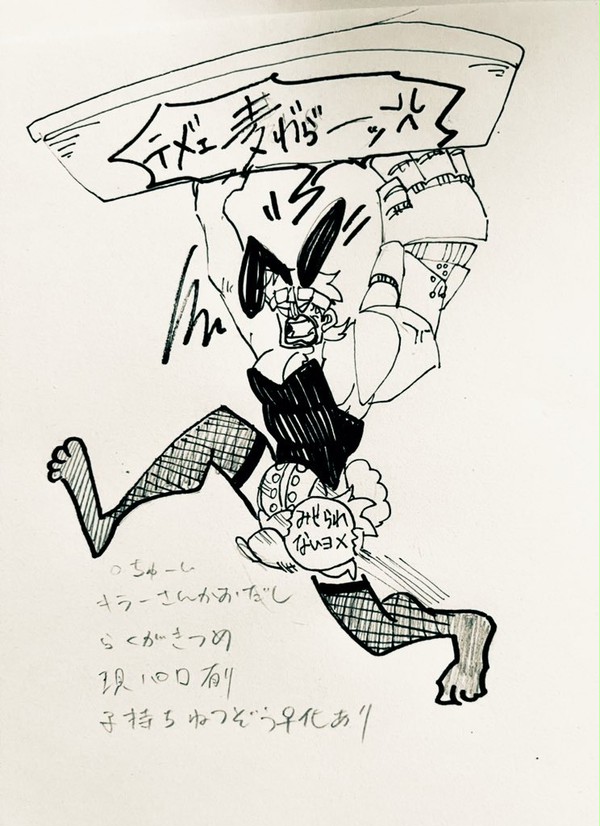 テメ゛ェ麦わ゛ら゛ーッ
みせられ
ないヨメ
○ちゅーい
キラーさんかおだし
らくがきつめ
現パロ有り
子持ちねつぞう♀化あり